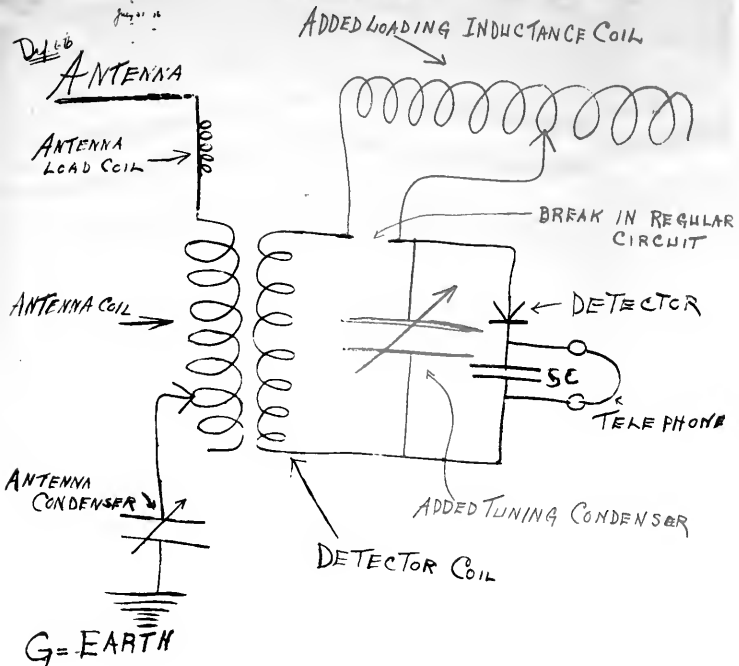 ADDED LOADING INDUCTANCE COIL
ANTENNA
ANTENNA
LOAD COIL
BREAK IN REGULAR
CIRCUIT
ANTENNA COIL
DETECTOR
SC
TELEPHONE
ANTENNA
CONDENSER
ADDED TUNING CONDENSER
DETECTOR COIL
G= EARTH